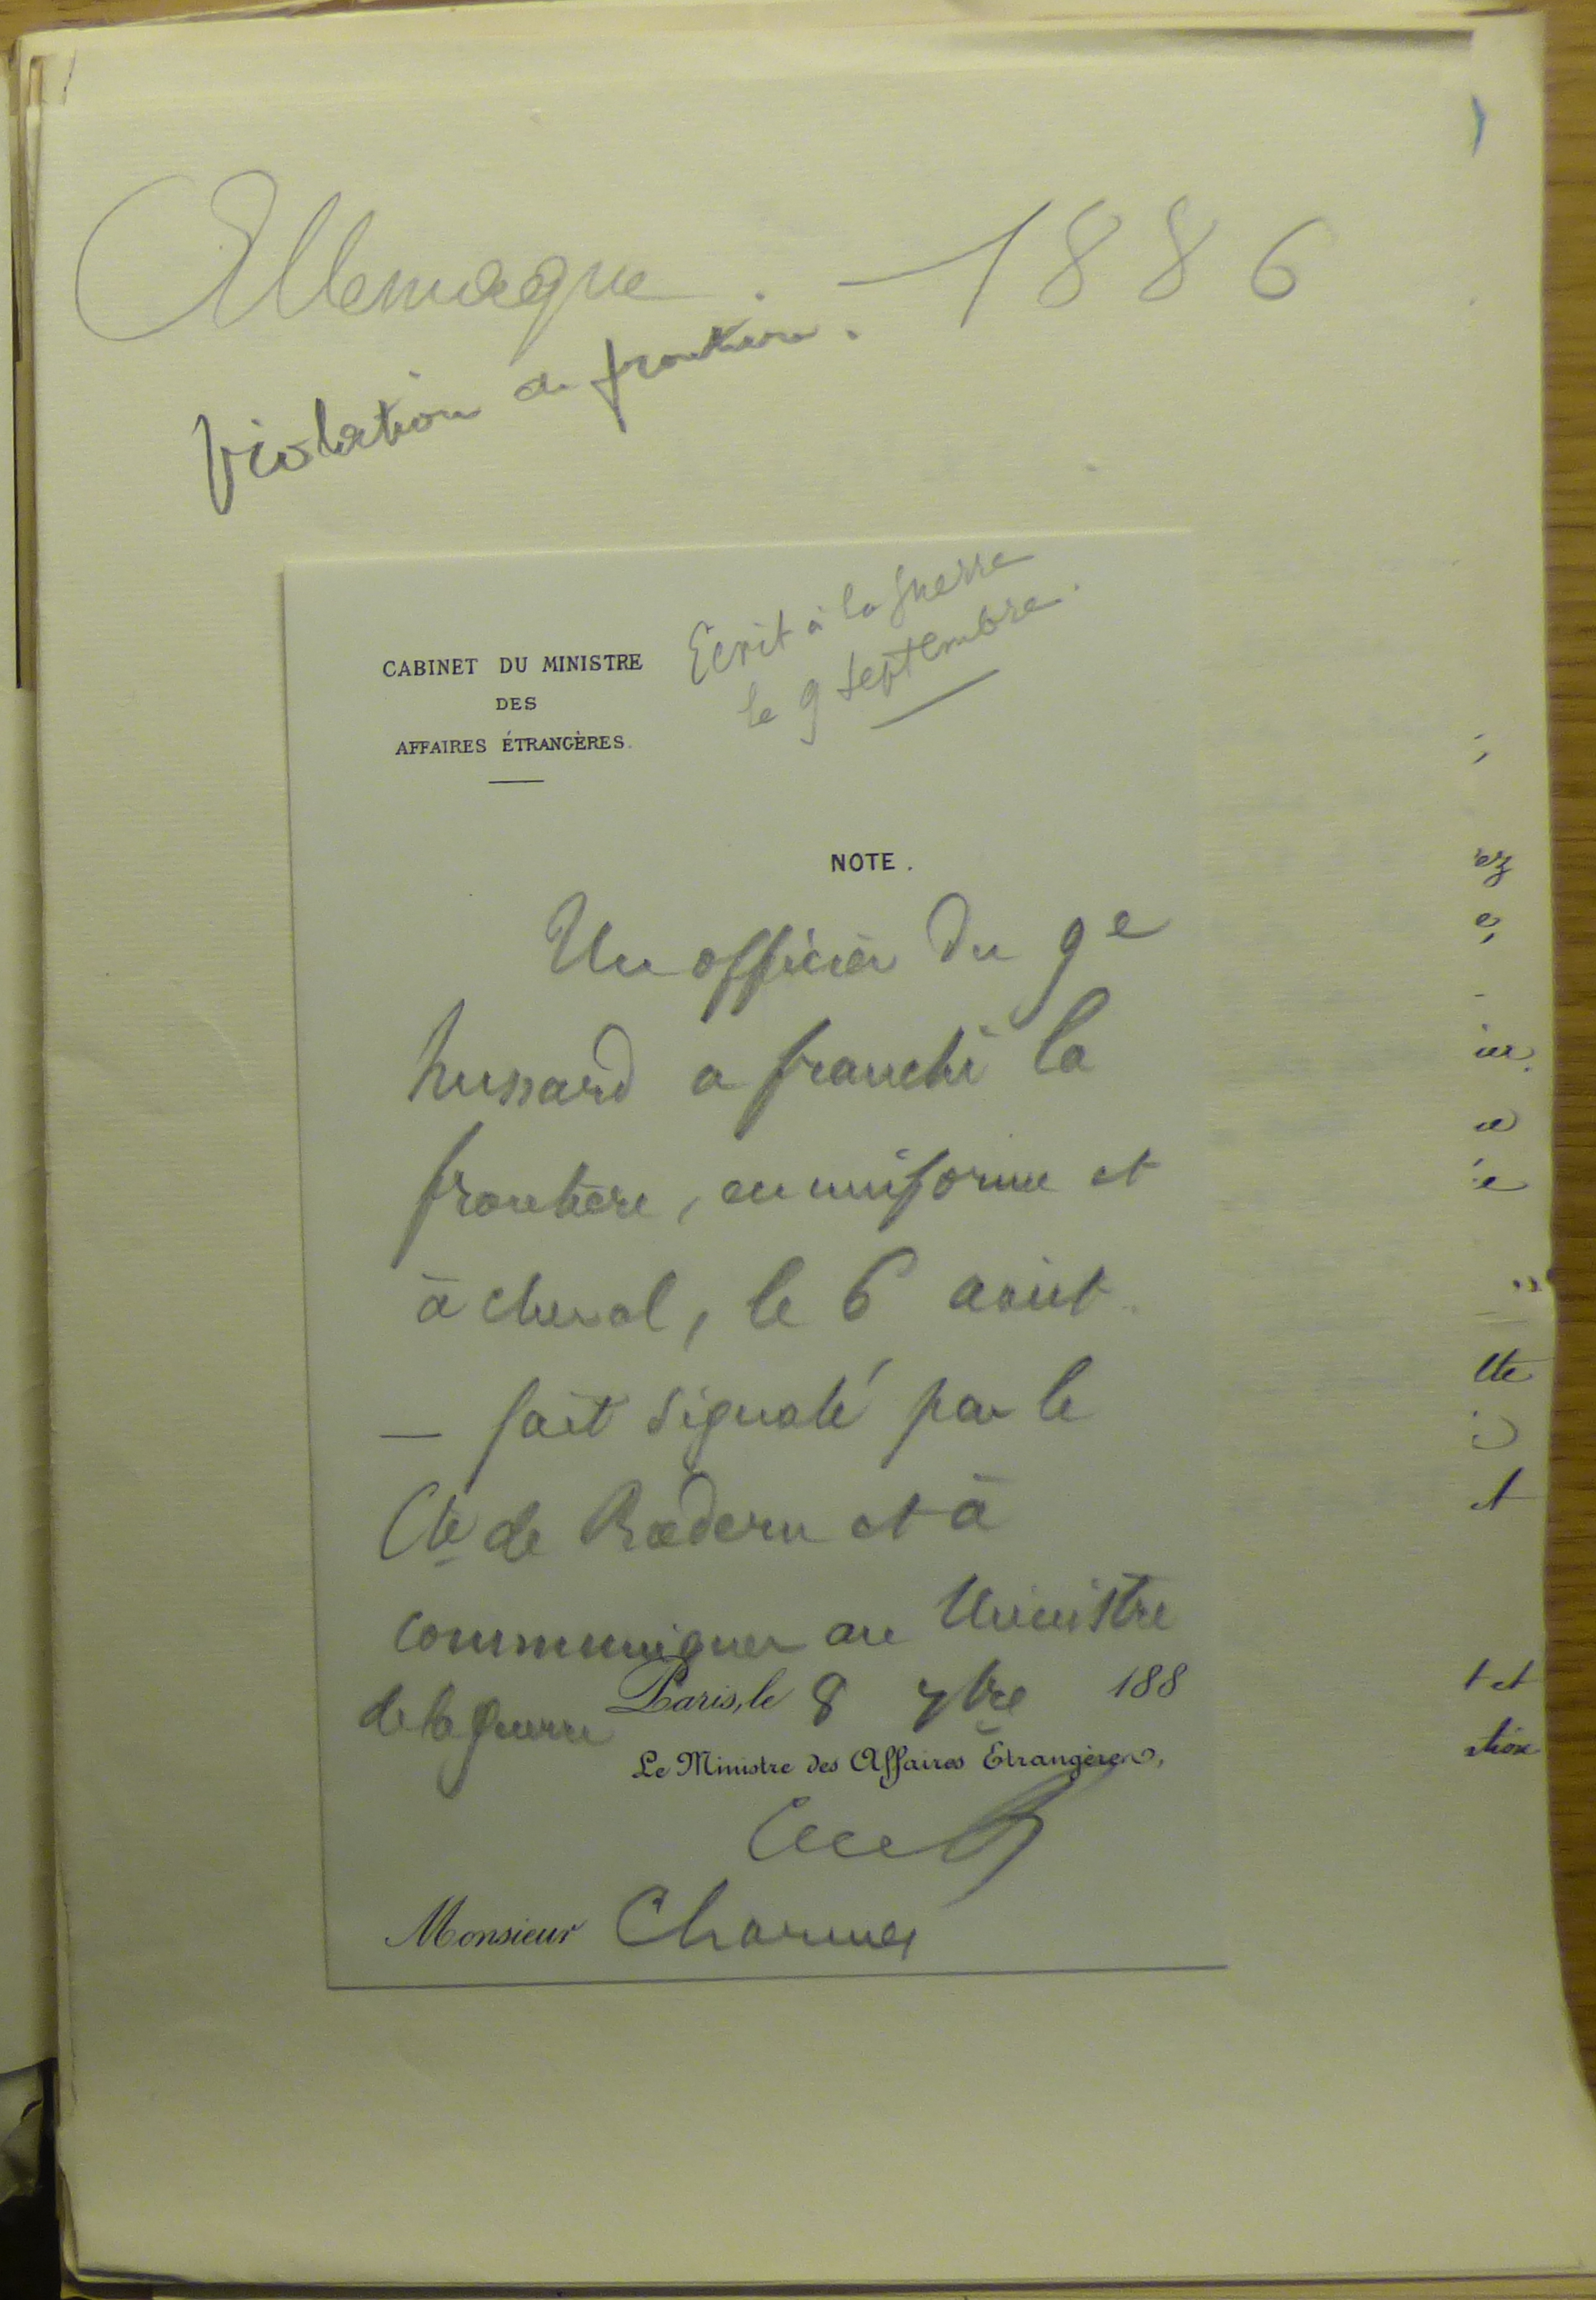 Allemagne. — 1886
Violation de frontière.
Ecrit à la Guerre
le 9 septembre.
CABINET DU MINISTRE
DES
AFFAIRES ÉTRANGÈRES.
NOTE.
Un officier du 9e
hussard a franchi la
frontière, en uniforme et
à cheval, le 6 août
— fait signalé par le
Cte de Rœdern et à
communiquer au Ministre
de la guerre
Paris, le 8 7bre 188
Le Ministre des Affaires Étrangères,
Monsieur Charmes
ez
e,
ce
e
tte
et
t et
tion